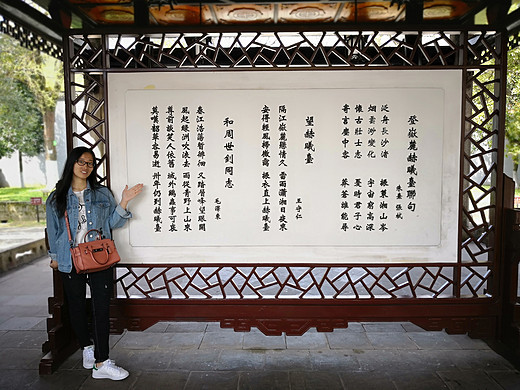 登嶽麓赫曦臺聯句
朱熹 張栻
泛舟長沙渚 振策湘山岑
烟雲渺變化 宇宙窮高深
懷古壯士志 憂時君子心
寄言塵中客 莽蒼誰能尋
望赫曦臺
王守仁
隔江嶽麓懸情久 雷雨瀟湘日夜來
安得輕風掃微靄 振衣直上赫曦臺
和周世釗同志
毛澤東
春江浩蕩暫徘徊 又踏層峰望眼開
風起綠洲吹浪去 雨從青野上山來
尊前談笑人依舊 域外雞蟲事可哀
莫嘆韶華容易逝 卅年仍到赫曦臺